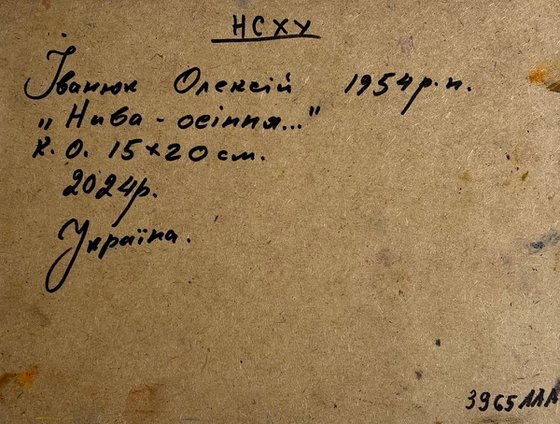 НСХУ
Іванюк Олексій 1954р.н.
„Нива - осіння..."
К.О. 15×20см.
2024р.
Україна.
3965ААА